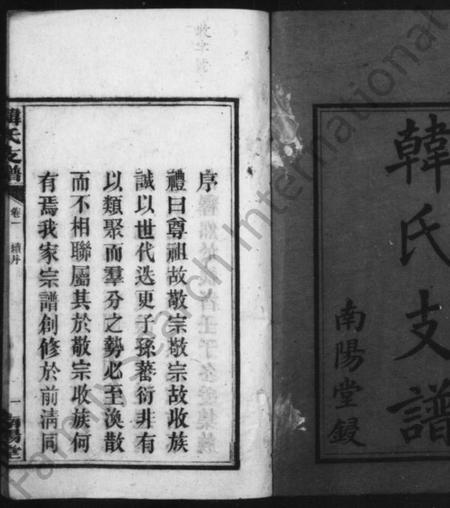 韓氏支譜
南陽堂鋟
序
禮曰尊祖故敬宗敬宗故收族
誠以世代迭更子孫蕃衍非有
以類聚而羣分之勢必至渙散
而不相聯屬其於敬宗收族何
有焉我家宗譜創修於前清同
韓氏支譜
卷一
一
南陽堂
FamilySearch International